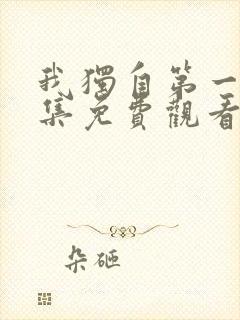 我獨自第一
集免費觀看
朵砸